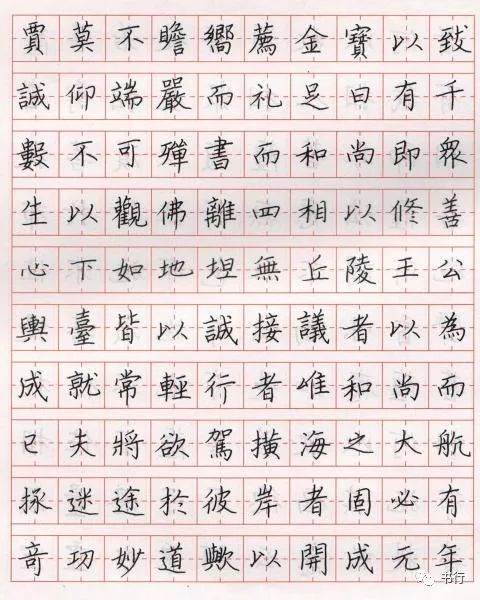 賈莫不瞻嚮薦金寶以致
誠仰端嚴而礼足日有千
數不可殫書而和尚即衆
生以觀佛離四相以修善
心下如地坦無丘陵王公
輿臺皆以誠接議者以為
成就常輕行者唯和尚而
已夫將欲駕橫海之大航
拯迷途於彼岸者固必有
奇功妙道歟以開成元年
书行